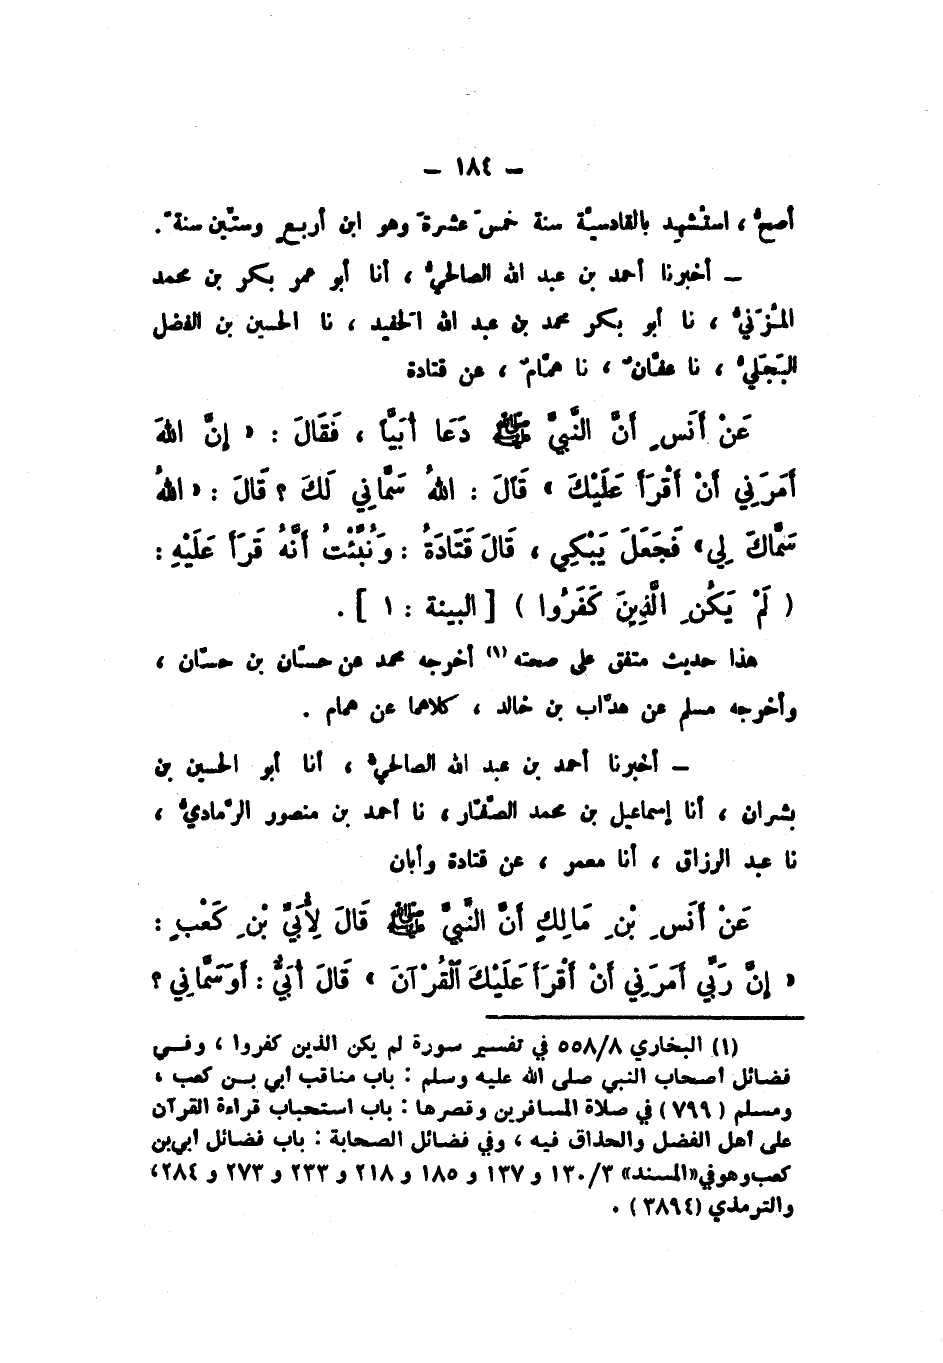 – ١٨٤ –
أصحُّ ، استُشهد بالقادسيَّة سنة خمسَ عشرةَ وهو ابن أربعٍ وستّين سنةً .
– أخبرنا أحمد بن عبد الله الصالحيُّ ، أنا أبو عمر بكر بن محمد
المُزَنيُّ ، نا أبو بكر محمد بن عبد الله الحَفيد ، نا الحسين بن الفضل
البَجَليُّ ، نا عفَّانُ ، نا همَّامٌ ، عن قتادة
عَنْ أَنَسٍ أَنَّ النَّبِيَّ ﷺ دَعَا أُبَيًّا ، فَقَالَ : « إِنَّ اللهَ
أَمَرَنِي أَنْ أَقْرَأَ عَلَيْكَ » قَالَ : اللهُ سَمَّانِي لَكَ ؟ قَالَ : « اللهُ
سَمَّاكَ لِي » فَجَعَلَ يَبْكِي ، قَالَ قَتَادَةُ : وَنُبِّئْتُ أَنَّهُ قَرَأَ عَلَيْهِ :
( لَمْ يَكُنِ الَّذِينَ كَفَرُوا ) [ البينة : ١ ] .
هذا حديث متفق على صحته (١) أخرجه محمد عن حسَّان بن حسَّان ،
وأخرجه مسلم عن هدَّاب بن خالد ، كلاهما عن همام .
– أخبرنا أحمد بن عبد الله الصالحيُّ ، أنا أبو الحسين بن
بشران ، أنا إسماعيل بن محمد الصفَّار ، نا أحمد بن منصور الرَّماديُّ ،
نا عبد الرزاق ، أنا معمر ، عن قتادة وأبان
عَنْ أَنَسِ بْنِ مَالِكٍ أَنَّ النَّبِيَّ ﷺ قَالَ لِأُبَيِّ بْنِ كَعْبٍ :
« إِنَّ رَبِّي أَمَرَنِي أَنْ أَقْرَأَ عَلَيْكَ الْقُرْآنَ » قَالَ أُبَيٌّ : أَوَسَمَّانِي ؟
(١) البخاري ٥٥٨/٨ في تفسير سورة لم يكن الذين كفروا ، وفي
فضائل أصحاب النبي صلى الله عليه وسلم : باب مناقب أبي بن كعب ،
ومسلم ( ٧٩٩ ) في صلاة المسافرين وقصرها : باب استحباب قراءة القرآن
على أهل الفضل والحذاق فيه ، وفي فضائل الصحابة : باب فضائل أبي بن
كعب وهو في «المسند» ١٣٠/٣ و ١٣٧ و ١٨٥ و ٢١٨ و ٢٣٣ و ٢٧٣ و ٢٨٤،
والترمذي (٣٨٩٤) .